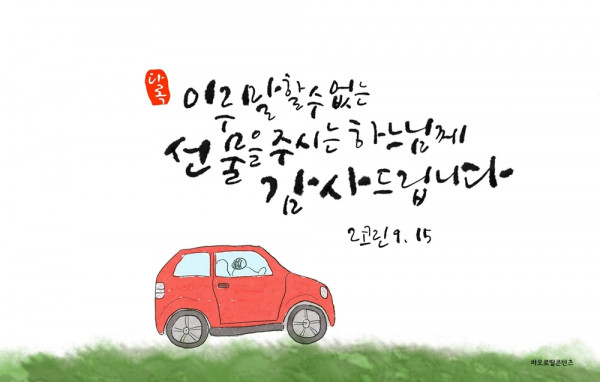 다록
이루 말할 수 없는
선물을 주시는 하느님께
감사드립니다
2코린 9. 15
바오로딸콘텐츠